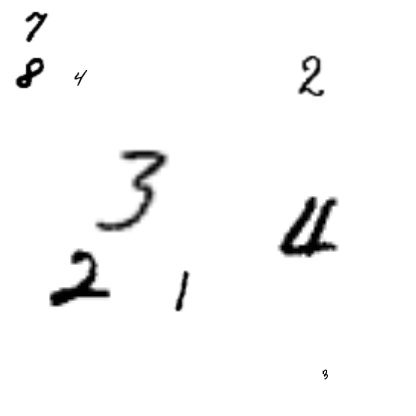 7
8 4 2
3
4
2 1
3